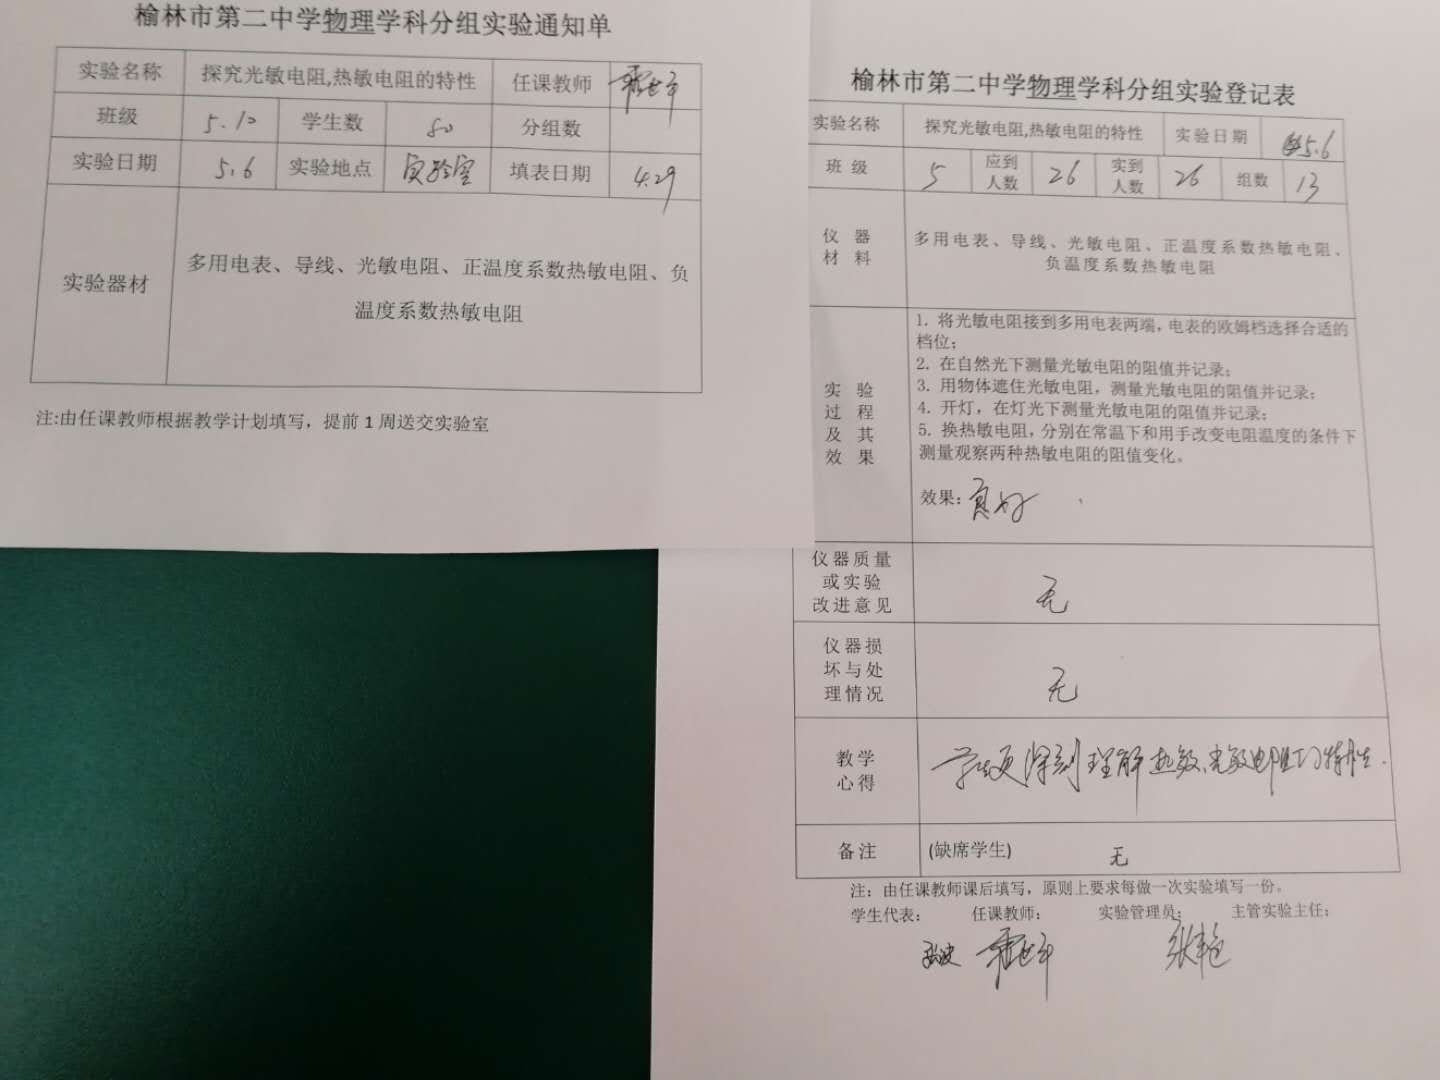 榆林市第二中学物理学科分组实验通知单
实验名称 探究光敏电阻,热敏电阻的特性 任课教师
班级 5.10 学生数 80 分组数
实验日期 5.6 实验地点 实验室 填表日期 4.29
实验器材 多用电表、导线、光敏电阻、正温度系数热敏电阻、负
温度系数热敏电阻
注:由任课教师根据教学计划填写，提前 1 周送交实验室
榆林市第二中学物理学科分组实验登记表
实验名称 探究光敏电阻,热敏电阻的特性 实验日期 5.6
班级 5 应到人数 26 实到人数 26 组数 13
仪器
材料
多用电表、导线、光敏电阻、正温度系数热敏电阻、
负温度系数热敏电阻
实验
过程
及其
效果
1. 将光敏电阻接到多用电表两端，电表的欧姆档选择合适的
档位；
2. 在自然光下测量光敏电阻的阻值并记录；
3. 用物体遮住光敏电阻，测量光敏电阻的阻值并记录；
4. 开灯，在灯光下测量光敏电阻的阻值并记录；
5. 换热敏电阻，分别在常温下和用手改变电阻温度的条件下
测量观察两种热敏电阻的阻值变化。
效果：良好
仪器质量
或实验
改进意见
无
仪器损
坏与处
理情况
无
教学
心得
学生更深刻理解热敏、光敏电阻的特性.
备注 (缺席学生) 无
注：由任课教师课后填写，原则上要求每做一次实验填写一份。
学生代表： 任课教师： 实验管理员： 主管实验主任：